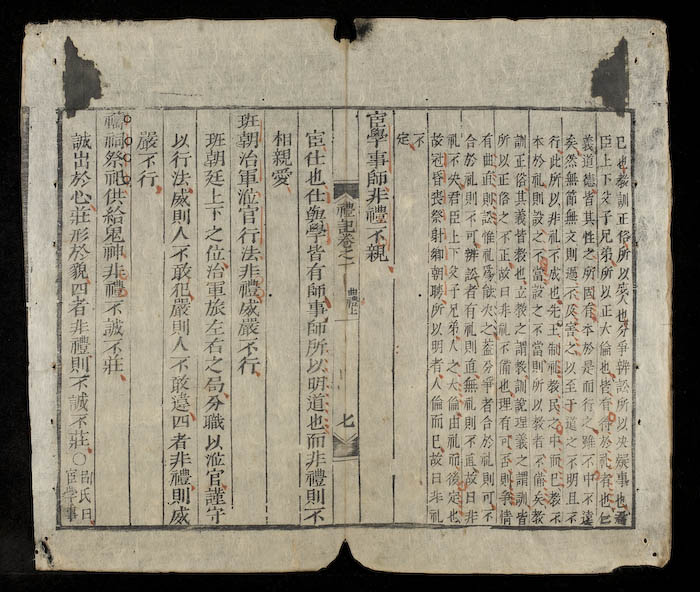 已也教訓正俗所以成人也分爭辨訟所以決嫌事也君
臣上下父子兄弟所以正大倫也皆有待於礼者也仁
義道德皆其性之所固有本於是而行之雖不中不遠
矣然無節無文則過不及害之以至于道之不明且不
行此所以非礼不成也先王制礼教民之中而已教不
本於礼則設之不當設之不當則所以教者不備矣教
訓正俗其義皆教也立教之謂教訓說理義之謂訓皆
所以正俗之不正故曰非礼不備也理有可否則爭情
有曲直則訟惟礼為能決之蓋分爭者合於礼則可不
合於礼則不可辨訟者有礼則直無礼則不直故曰非
礼不決君臣上下父子兄弟人之大倫由礼而後定也
故冠昏喪祭射鄉朝聘所以明者人倫而已故曰非礼
不
定
宦學事師非禮不親
禮記卷之一 曲禮上 七
宦仕也仕與學皆有師事師所以明道也而非禮則不
相親愛
班朝治軍涖官行法非禮威嚴不行
班朝廷上下之位治軍旅左右之局分職以涖官謹守
以行法威則人不敢犯嚴則人不敢違四者非禮則威
嚴不行
禱祠祭祀供給鬼神非禮不誠不莊
誠出於心莊形於貌四者非禮則不誠不莊○呂氏曰
宦學事